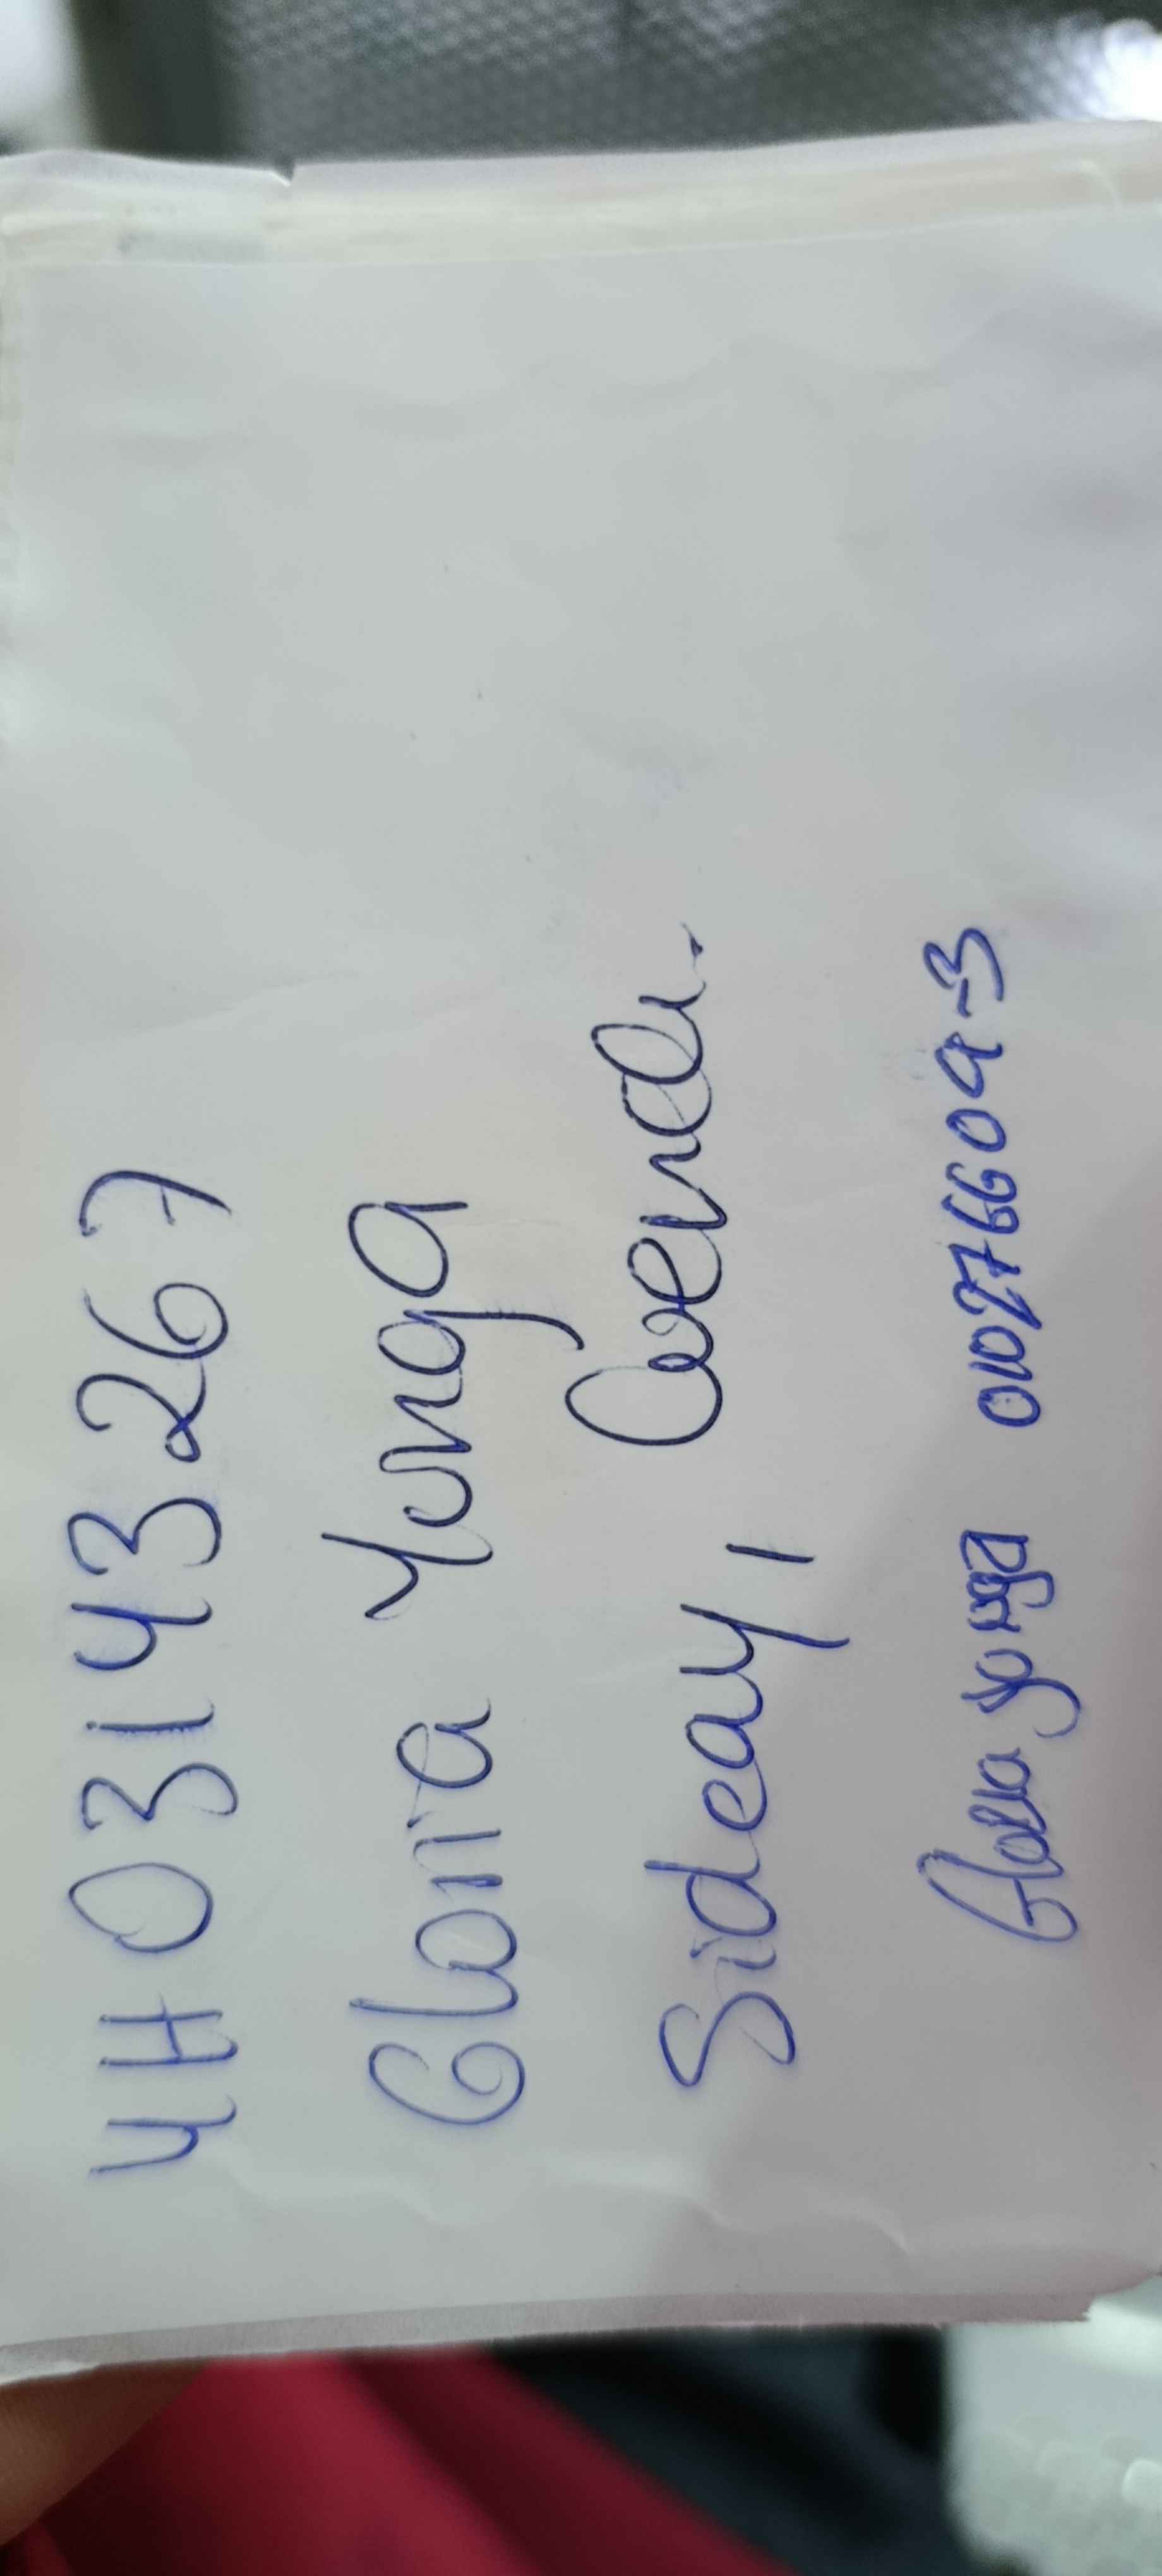 4H03143267
Gloria Yunga
Sideay,
Gloria yunga 010276609-3